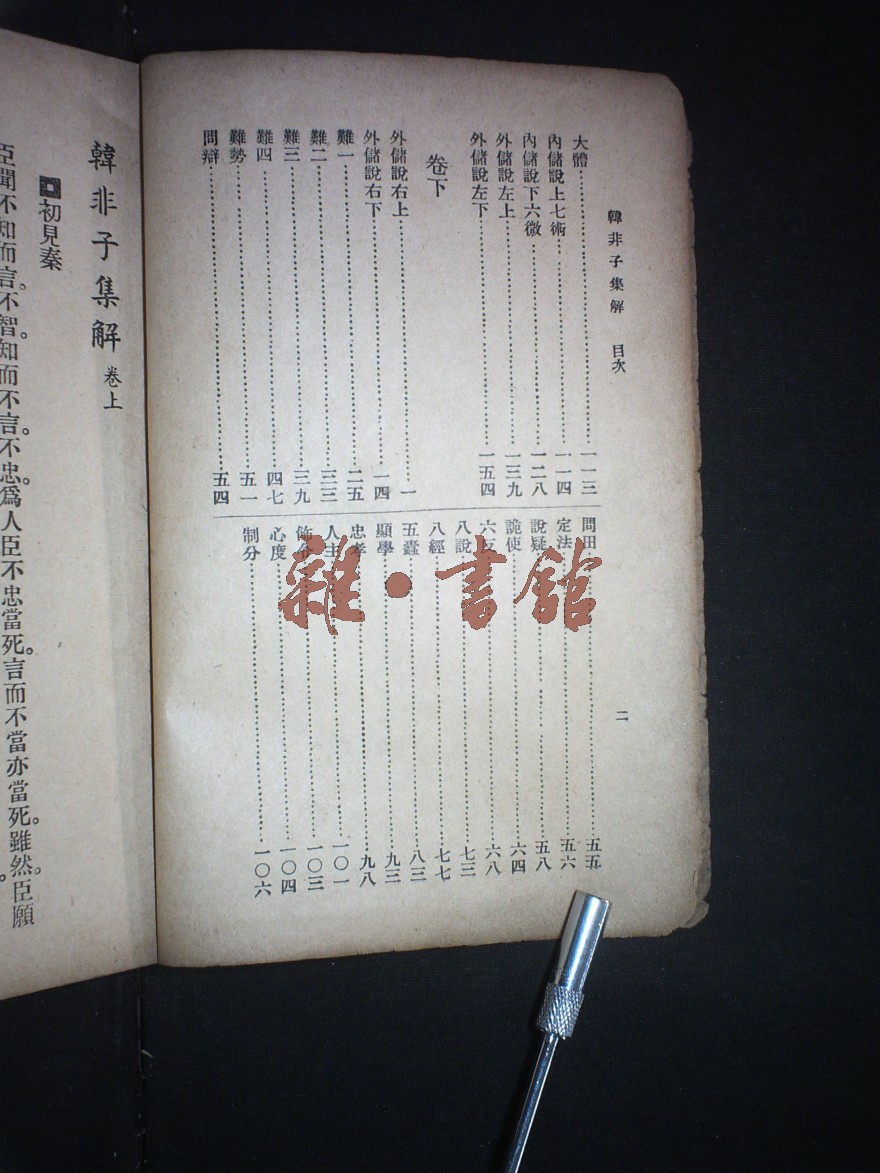 韓非子集解 目次 二
大體 一一三
內儲說上七術 一一四
內儲說下六微 一二八
外儲說左上 一三九
外儲說左下 一五四
卷下
外儲說右上 一
外儲說右下 一四
難一 二五
難二 三三
難三 三九
難四 四七
難勢 五一
問辯 五四
問田 五五
定法 五六
說疑 五八
詭使 六四
六反 六八
八說 七三
八經 七七
五蠹 八三
顯學 九三
忠孝 九八
人主 一〇一
飭令 一〇三
心度 一〇四
制分 一〇六
韓非子集解 卷上
初見秦
臣聞不知而言。不智。知而不言。不忠。爲人臣不忠當死。言而不當亦當死。雖然。臣願
雜·書館